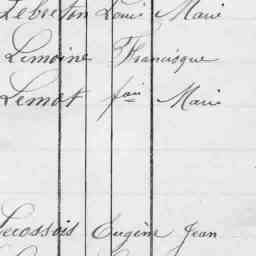 Lebreton Louis Marie
Lemoine Francisque
Lemot Marie
Lecossois Eugène Jean